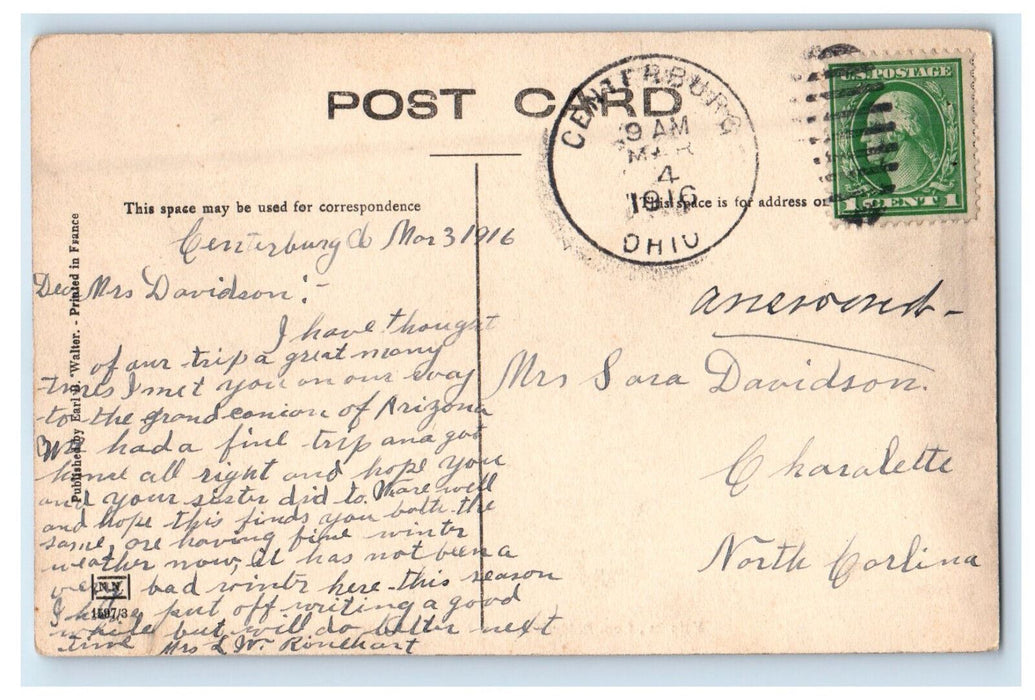 POST CARD
CENTERBURG
9 AM
MAR
4
1916
OHIO
U.S. POSTAGE
1 CENT 1
This space may be used for correspondence
This space is for address on
Published by Earl B. Walter. - Printed in France
N.N.
1597/3
Centerburg O Mar 3 1916
Dea Mrs Davidson:-
I have thought
of our trip a great many
times I met you on our way
to the grand canion of Arizona
We had a fine trip and got
home all right and hope you
and your sister did to. Ware well
and hope this finds you both the
same, are having fine winter
weather now, it has not been a
very bad winter here this season
I have put off writing a good
while but will do better next
time Mrs L W. Rinehart
answered-
Mrs Sara Davidson.
Charalette
North Corlina